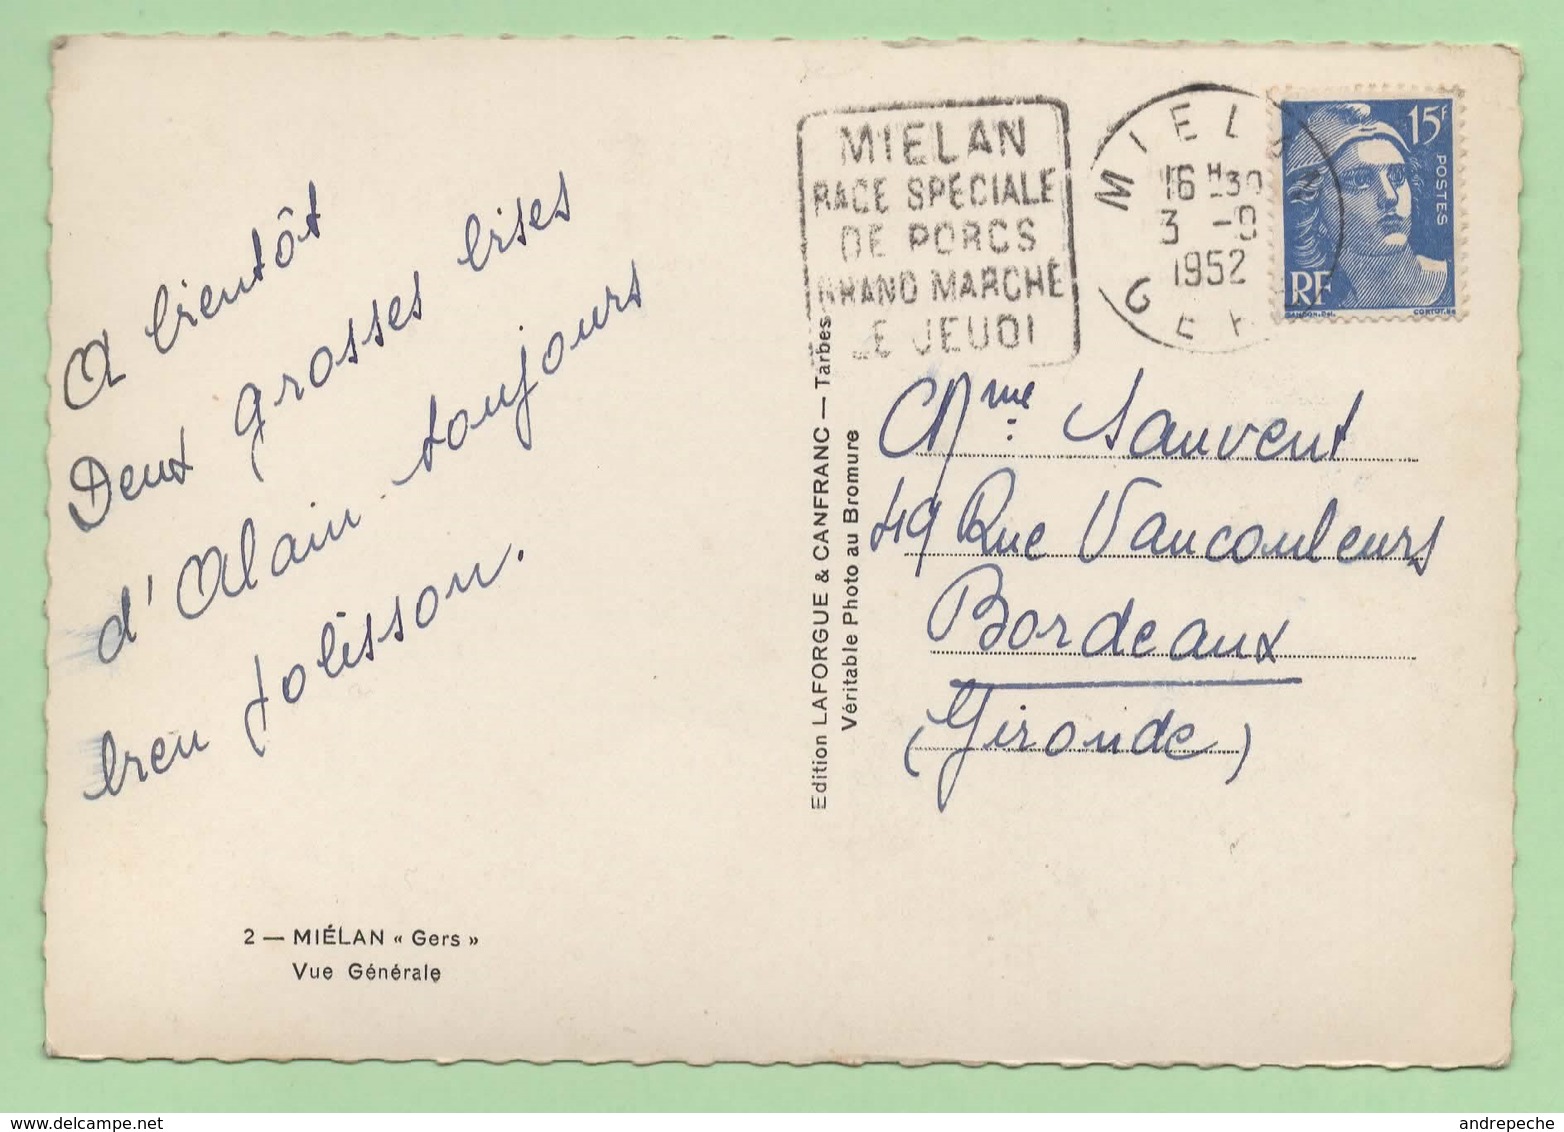 A bientôt
Deux grosses bises
d'Alain toujours
bien polisson.
2 — MIÉLAN « Gers »
Vue Générale
Edition LAFORGUE & CANFRANC — Tarbes
Véritable Photo au Bromure
MIELAN
RACE SPÉCIALE
DE PORCS
GRAND MARCHÉ
LE JEUDI
MIELAN
16 H 30
3 -9
1952
GERS
15F
POSTES
RF
GANDON.Del.
CORTOT.Sc
Mme Sauvent
49 Rue Vaucouleurs
Bordeaux
(Gironde)
andrepeche